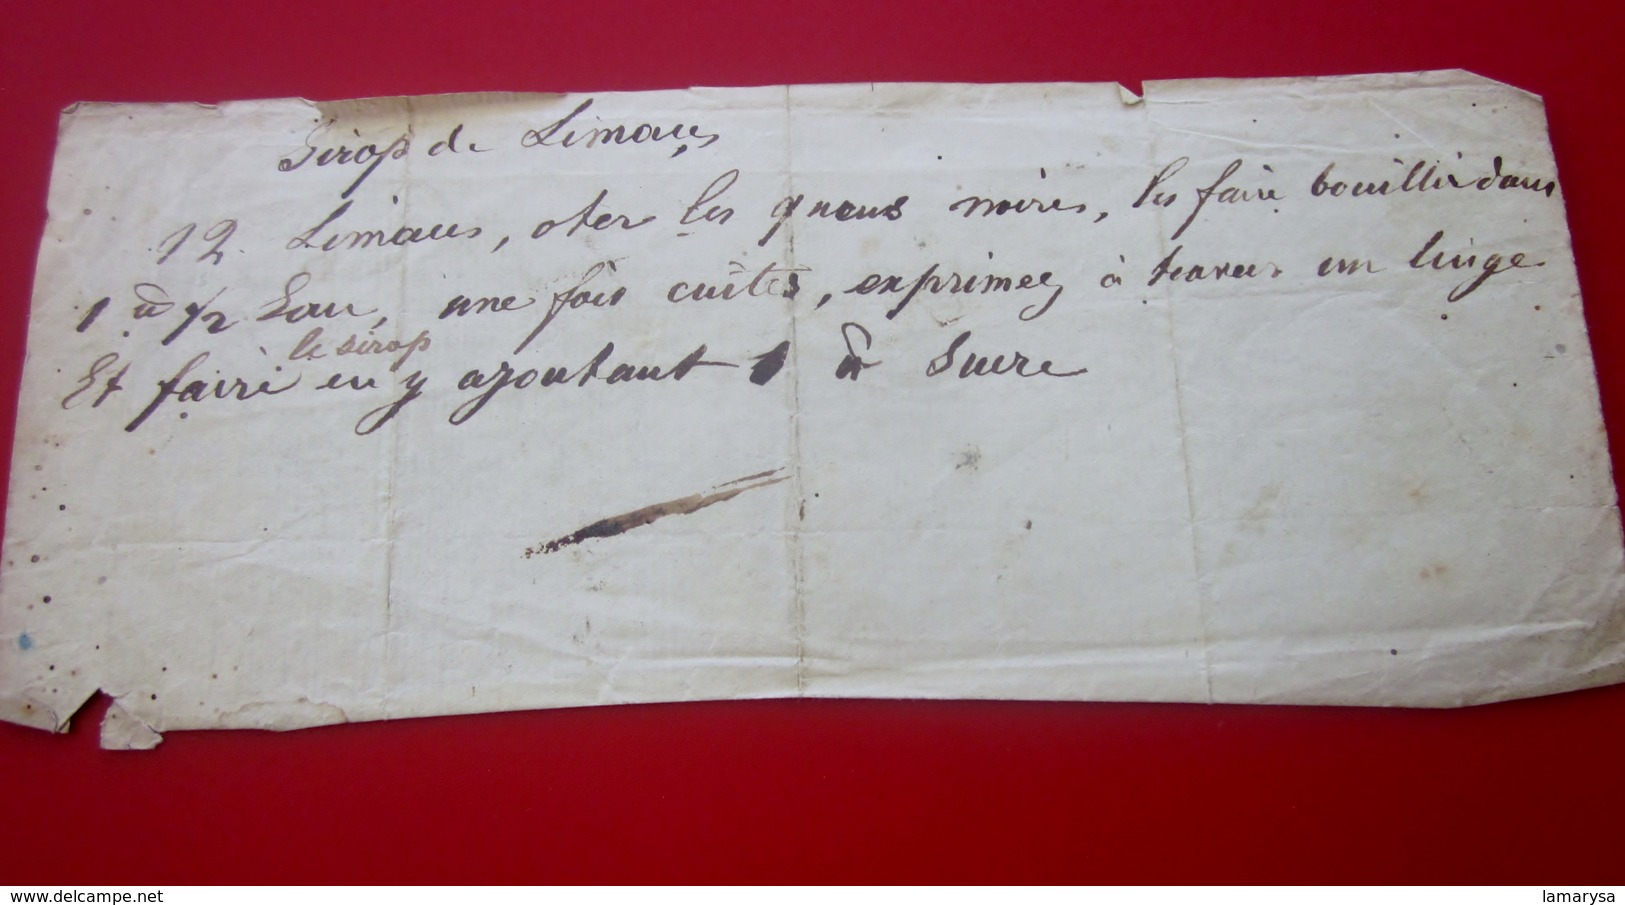 Sirop de Limaçs
12 Limaces, oter les queues noires, les faire bouillir dans
1 ℔ 1/2 Eau, une fois cuites, exprimez à travers un linge
le sirop
Et faire en y ajoutant 1 ℔ Sucre
www.delcampe.net
lamarysa